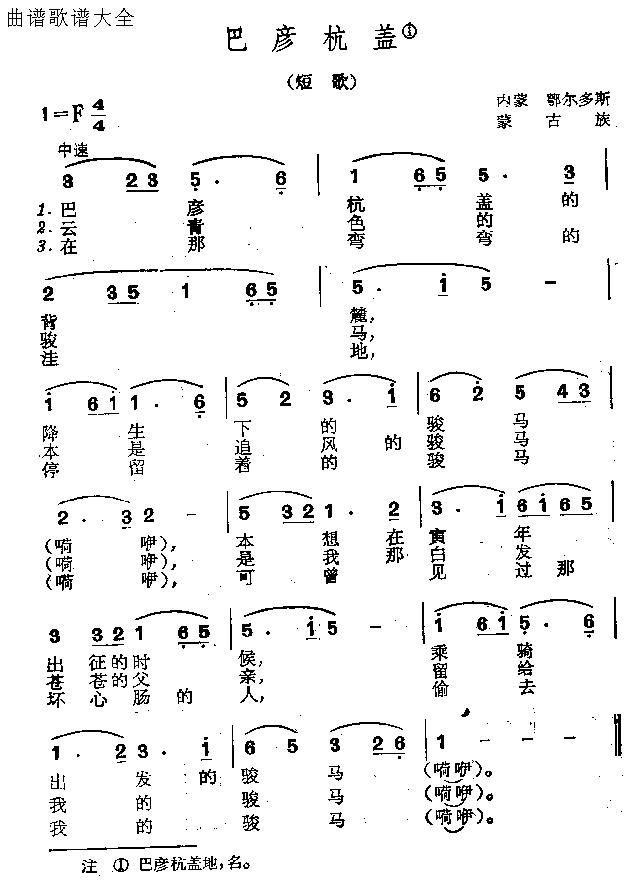 曲谱歌谱大全
巴彦杭盖①
(短歌)
1=F 4/4
内蒙 鄂尔多斯
蒙古族
中速
3 2 3 5 . 6 | 1 6 5 5 . 3 |
1.巴 彦 杭 盖 的
2.云 青 色 的
3.在 那 弯 弯 的
2 3 5 1 6 5 | 5 . 1 5 – |
背 麓,
骏 马,
洼 地,
1 6 1 1 . 6 | 5 2 3 . 1 | 6 2 5 4 3 |
降 生 下 的 骏 马
本 是 追 风 的 骏 马
停 留 着 的 骏 马
2 . 3 2 – | 5 3 2 1 . 2 | 3 . 1 6 1 6 5 |
(嗬 咿), 本 想 在 寅 年
(嗬 咿), 是 我 那 白 发
(嗬 咿), 可 曾 见 过 那
3 3 2 1 6 5 | 5 . 1 5 – | 1 6 1 5 . 6 |
出 征 的 时 候, 乘 骑
苍 苍 的 父 亲, 留 给
坏 心 肠 的 人, 偷 去
1 . 2 3 . 1 | 6 5 3 2 6 | 1 – – – ‖
出 发 的 骏 马 (嗬咿)。
我 的 骏 马 (嗬咿)。
我 的 骏 马 (嗬咿)。
注 ① 巴彦杭盖地,名。